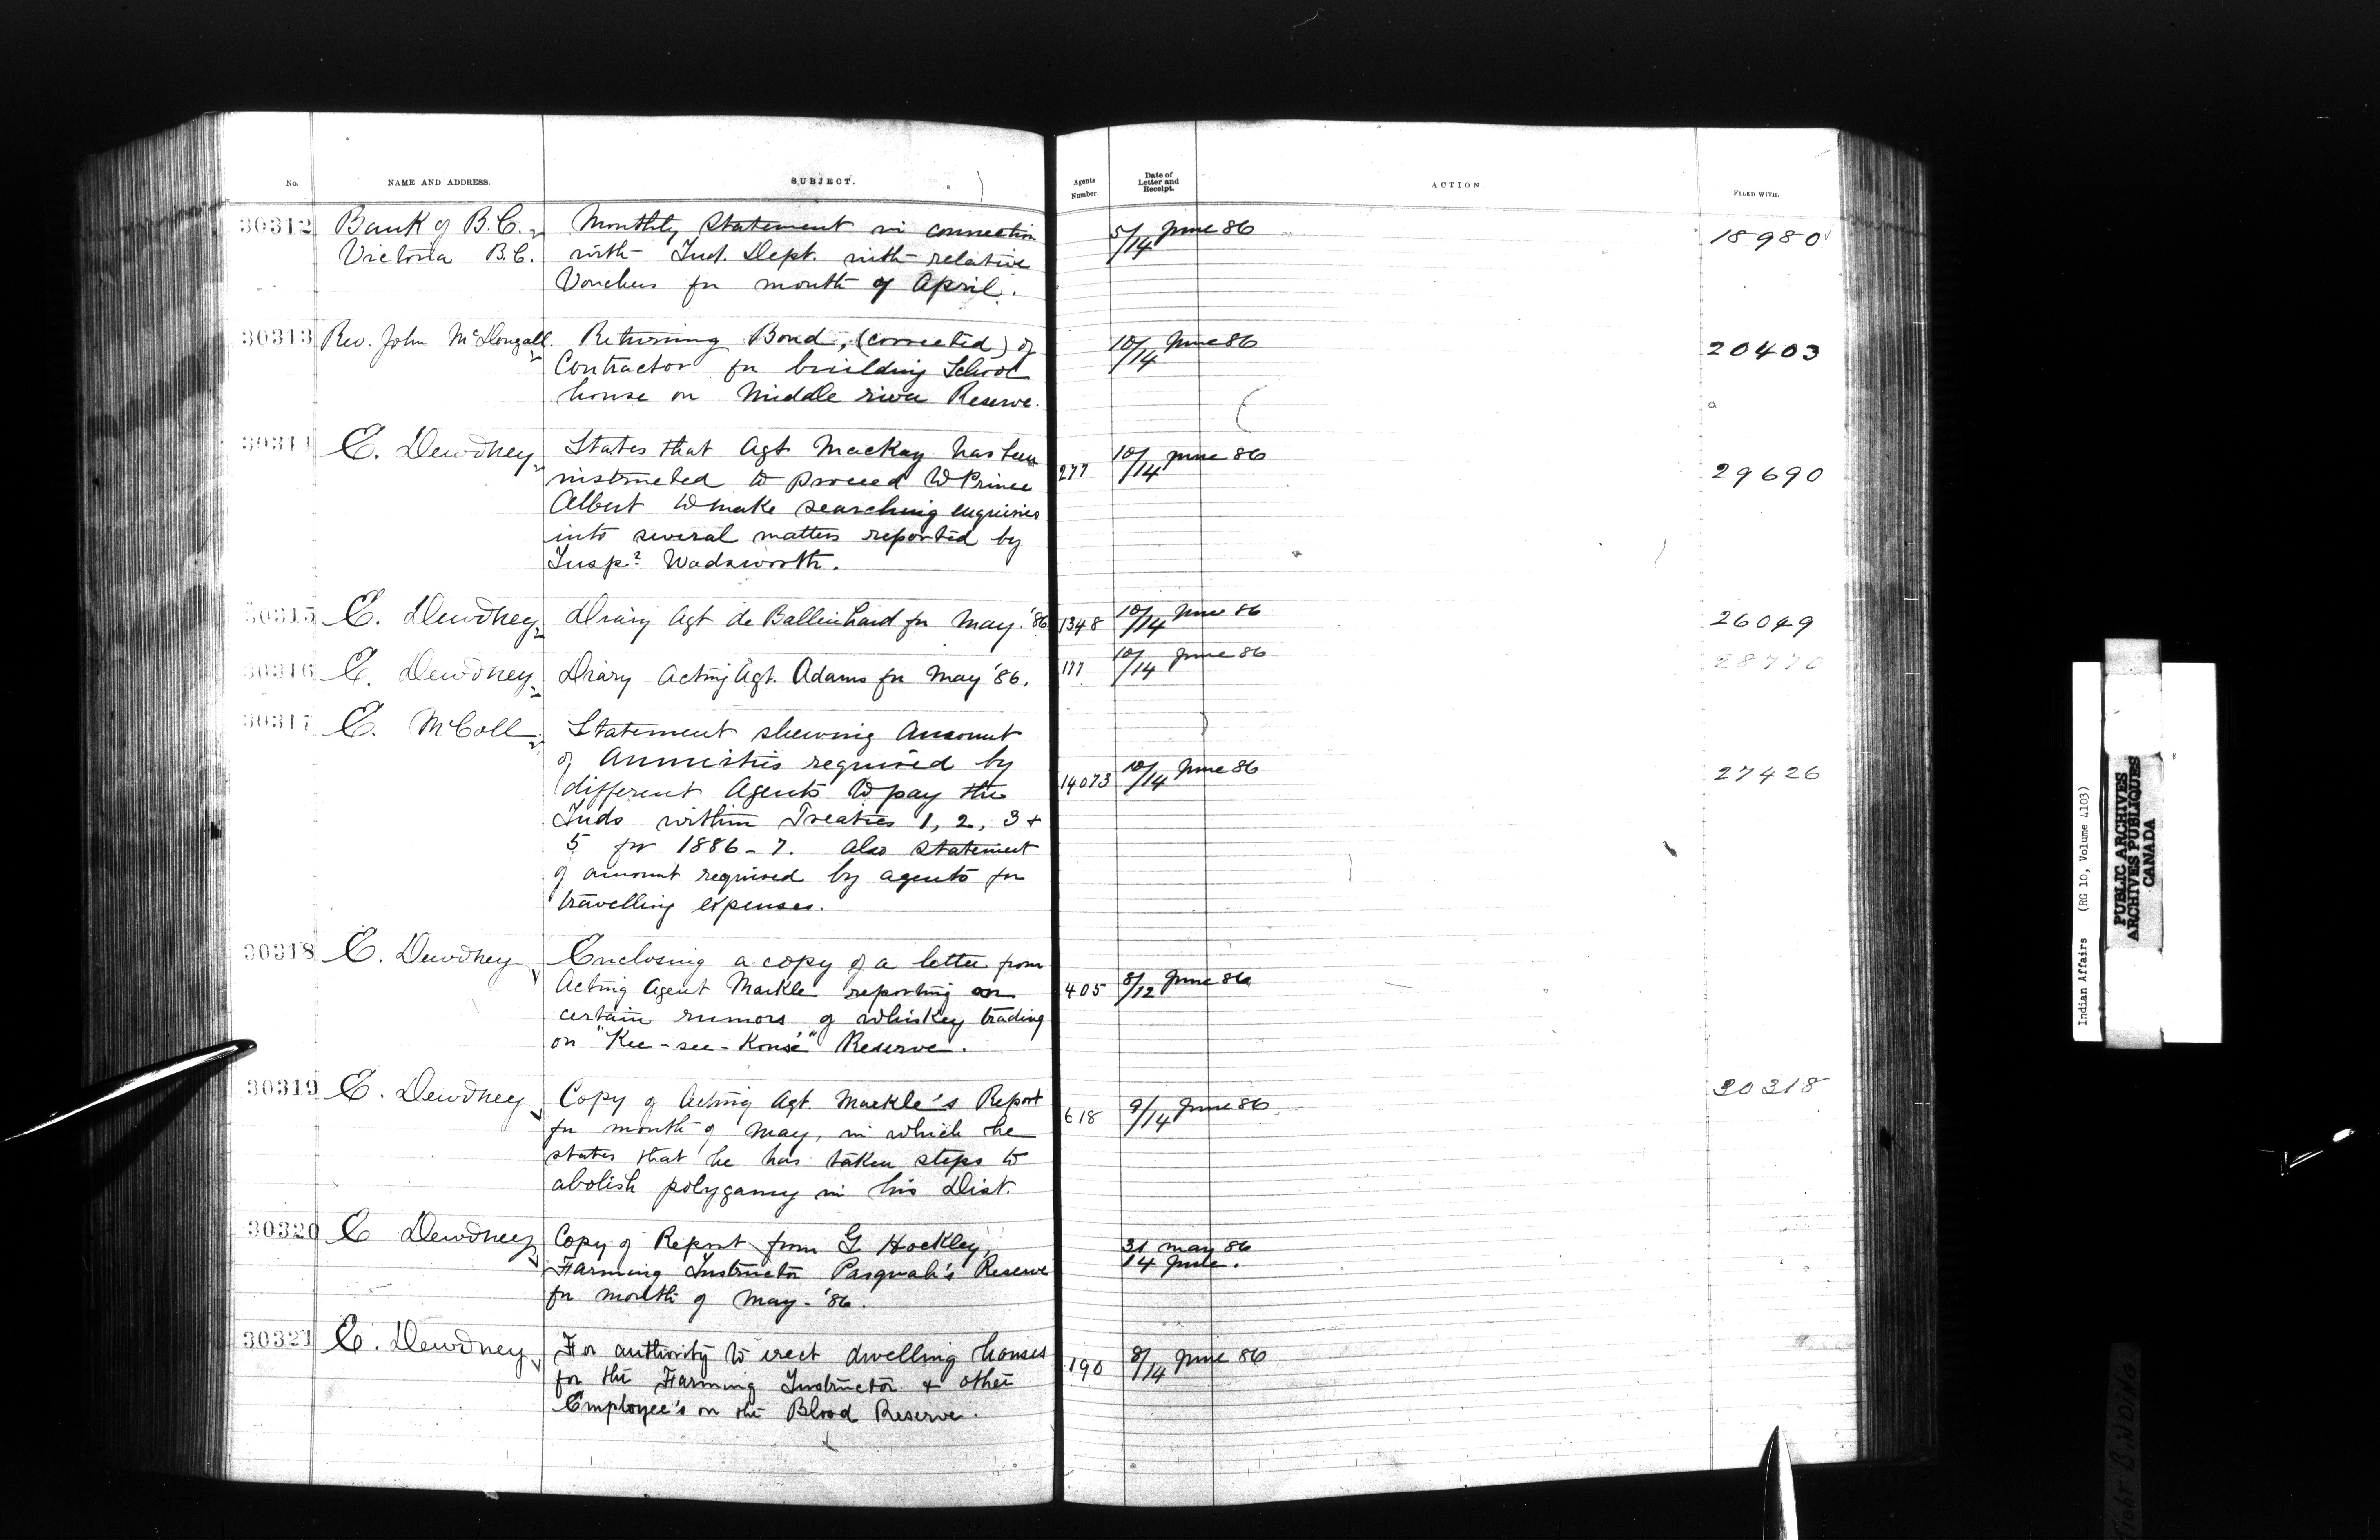 No. NAME AND ADDRESS. SUBJECT. Agents Number. Date of Letter and Receipt. ACTION. FILED WITH.
30312 Bank of B.C. Monthly Statement in connection 5/14 June 86 18980
Victoria B.C. with Ind. Dept. with relative
Vouchers for month of April.
30313 Rev. John McDougall. Returning Bond, (corrected) of 10/14 June 86 20403
Contractor for building School
house on Middle river Reserve.
30314 E. Dewdney States that Agt Mackay has been 277 10/14 June 86 29690
instructed to proceed to Prince
Albert to make searching enquiries
into several matters reported by
Insp. Wadsworth.
30315 E. Dewdney Diary Agt de Balleinhard for May '86 1348 10/14 June 86 26049
30316 E. Dewdney Diary Acting Agt. Adams for May '86. 177 10/14 June 86 28770
30317 E. McColl Statement shewing Amount
of Annuities required by 14073 10/14 June 86 27426
different Agents to pay the
Inds within Treaties 1, 2, 3 +
5 for 1886-7. Also Statement
of amount required by agents for
travelling expenses.
30318 E. Dewdney Enclosing a copy of a letter from
Acting Agent Markle reporting on 405 8/12 June 86
certain rumors of whiskey trading
on "Kee-see-Konse'" Reserve.
30319 E. Dewdney Copy of Acting Agt. Markle's Report 618 9/14 June 86 30318
for month of May, in which he
states that he has taken steps to
abolish polygamy in his Dist.
30320 E Dewdney Copy of Report from G Hockley, 31 May 86
Farming Instructor Pasquah's Reserve 14 June.
for month of May - '86.
30321 E. Dewdney For authority to erect dwelling houses 190 8/14 June 86
for the Farming Instructor & other
Employee's on the Blood Reserve.
Indian Affairs (RG 10, Volume 4103)
PUBLIC ARCHIVES
ARCHIVES PUBLIQUES
CANADA
TIGHT BINDING